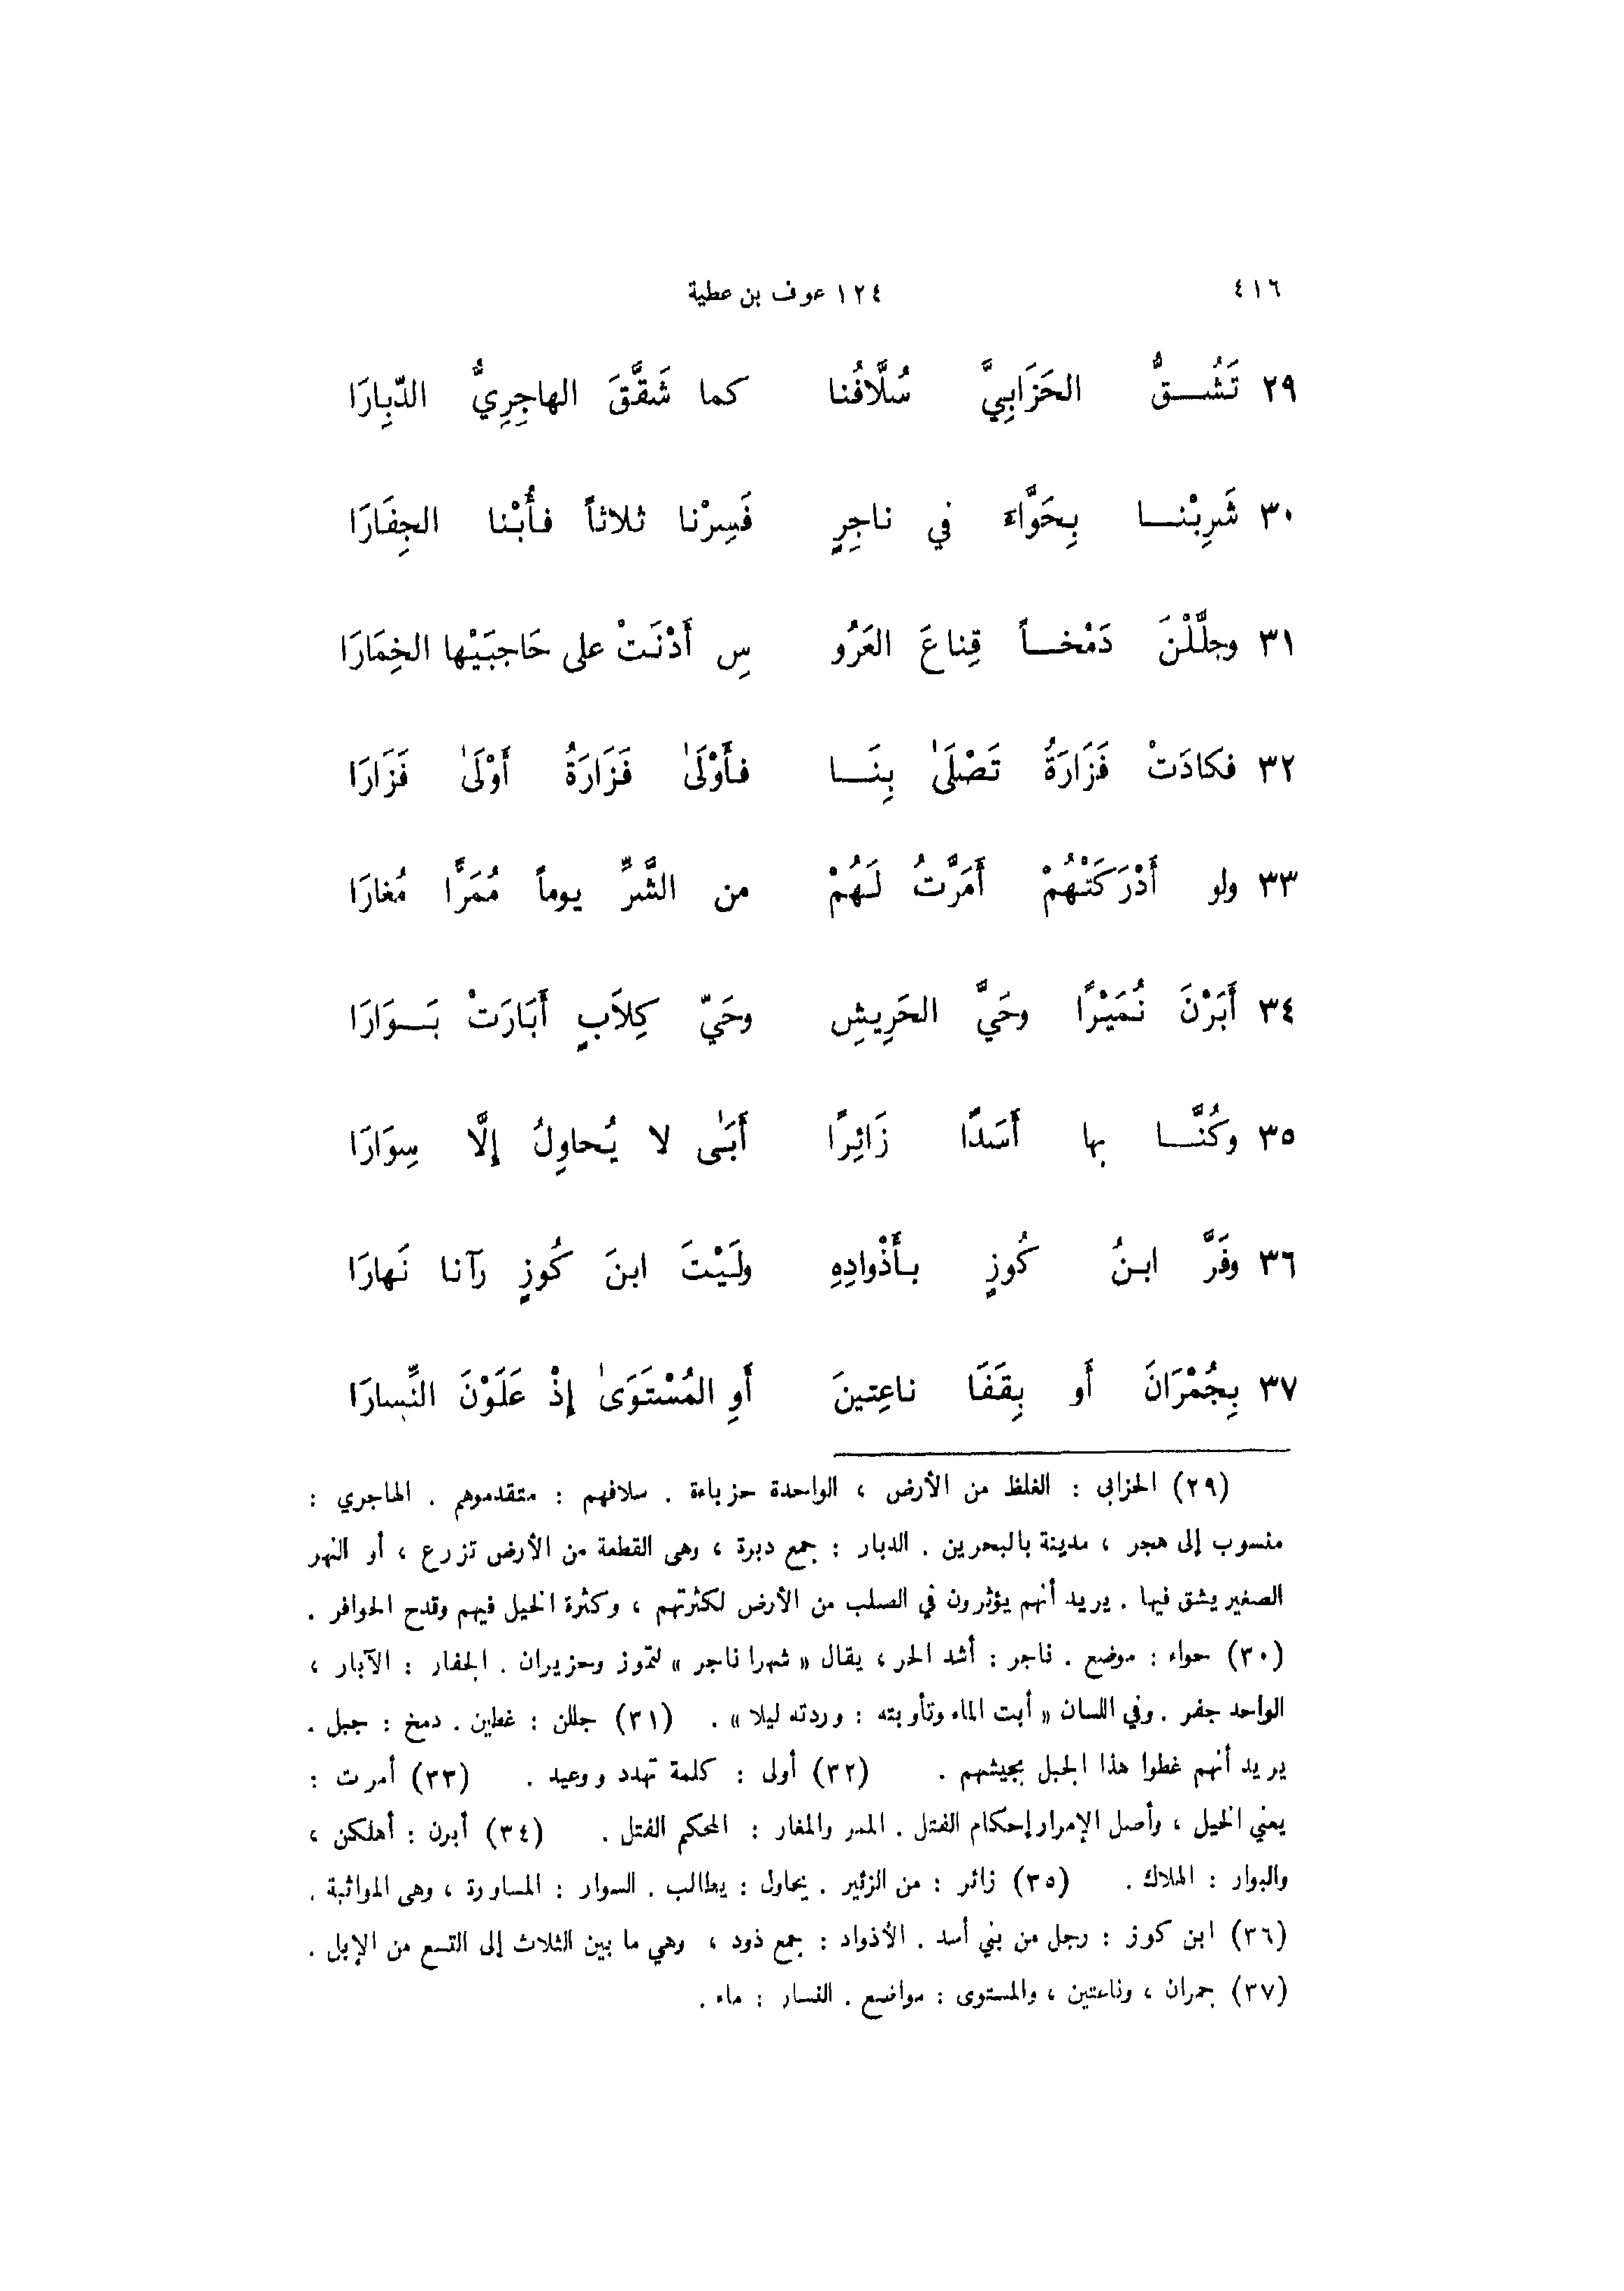 ٤١٦
١٢٤ عوف بن عطية
٢٩ تَشُـــقُّ الحَزَابِيَّ سُلَّافُنا كما شَقَّقَ الهاجِرِيُّ الدِّبِارَا
٣٠ شَرِبْنـــا بِحَوَّاءَ في ناجِرٍ فَسِرْنا ثلاثاً فأُبْنا الجِفَارَا
٣١ وجلَّلْنَ دَمْخــاً قِناعَ العَرُو سِ أَدْنَتْ على حَاجبَيْها الخِمَارَا
٣٢ فكادَتْ فَزَارَةُ تَصْلَىٰ بِنَــا فأَوْلَىٰ فَزَارَةُ أَوْلَىٰ فَزَارَا
٣٣ ولو أَدْرَكَتْهُمْ أَمَرَّتْ لَهُمْ من الشَّرِّ يوماً مُمَرًّا مُغارَا
٣٤ أَبَرْنَ نُمَيْرًا وحَيَّ الحَرِيشِ وحَيّ كِلاَبٍ أَبَارَتْ بَــوَارَا
٣٥ وكُنَّــا بها أَسَدًا زَائِرًا أَبَىٰ لا يُحاوِلُ إِلَّا سِوَارَا
٣٦ وفَرَّ ابنُ كُوزٍ بأَذْوادِهِ ولَيْتَ ابنَ كُوزٍ رآنا نَهارَا
٣٧ بِجُمْرَانَ أَو بِقَفَا ناعِتينَ أَوِ المُسْتَوَىٰ إِذْ عَلَوْنَ النِّسارَا
(٢٩) الحزابى : الغلظ من الأرض ، الواحدة حزباءة . سلافهم : متقدموهم . الهاجري :
منسوب إلى هجر ، مدينة بالبحرين . الدبار : جمع دبرة ، وهى القطعة من الأرض تزرع ، أو النهر
الصغير يشق فيها . يريد أنهم يؤثرون في الصلب من الأرض لكثرتهم ، وكثرة الخيل فيهم وقدح الحوافر .
(٣٠) حواء : موضع . ناجر : أشد الحر ، يقال « شهرا ناجر » لتموز وحزيران . الجفار : الآبار ،
الواحد جفر . وفي اللسان « أبت الماء وتأوبته : وردته ليلا » . (٣١) جللن : غطين . دمخ : جبل .
يريد أنهم غطوا هذا الجبل بجيشهم . (٣٢) أولى : كلمة تهدد ووعيد . (٣٣) أمرت :
يعني الخيل ، وأصل الإمرار إحكام الفتل . الممر والمغار : المحكم الفتل . (٣٤) أبرن : أهلكن ،
والبوار : الهلاك . (٣٥) زائر : من الزئير . يحاول : يطالب . السوار : المساورة ، وهى المواثبة .
(٣٦) ابن كوز : رجل من بني أسد . الأذواد : جمع ذود ، وهي ما بين الثلاث إلى التسع من الإبل .
(٣٧) جمران ، وناعتين ، والمستوى : مواضع . النسار : ماء .